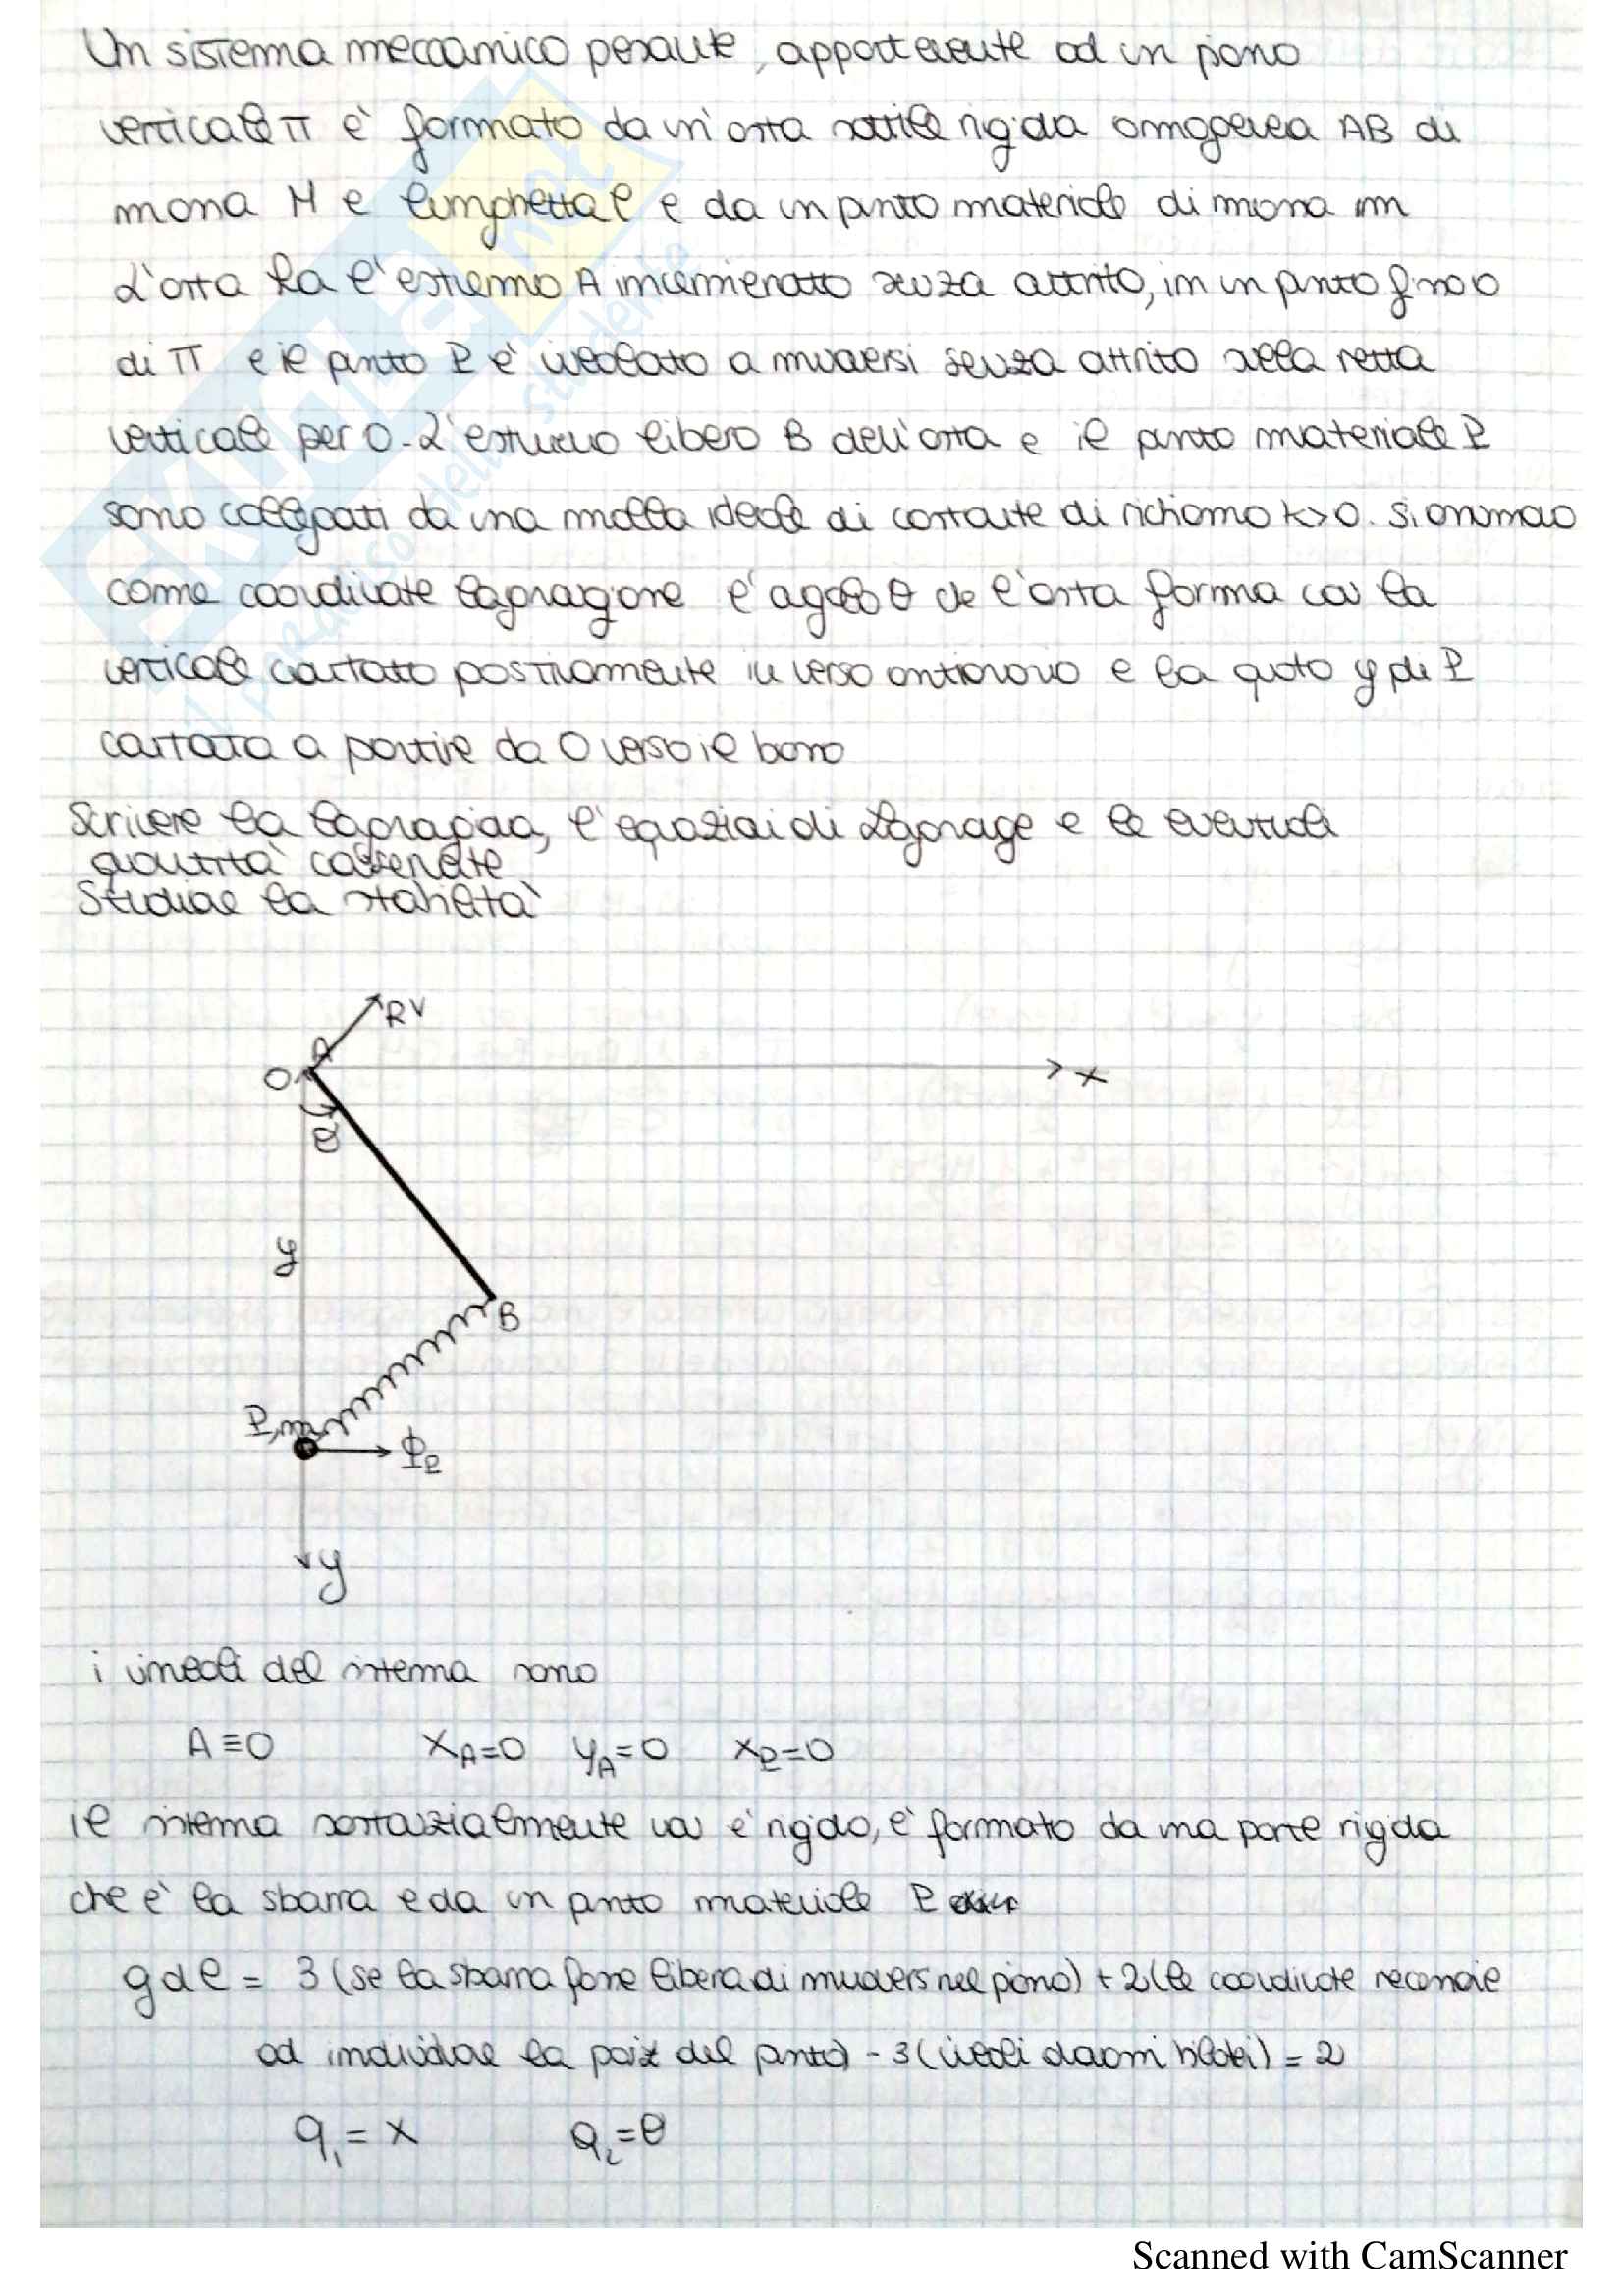 Un sistema meccanico pesante, appartenente ad un piano
verticale π e' formato da un'asta sottile rigida omogenea AB di
massa M e lunghetta l e da un punto materiale di massa m
L'asta ha l'estremo A incernierato senza attrito, in un punto fisso O
di π e il punto P e' vincolato a muoversi senza attrito sulla retta
verticale per O. L'estremo libero B dell'asta e il punto materiale P
sono collegati da una molla ideale di costante di richiamo k>0. Si assumano
come coordinate lagrangiane l'angolo θ che l'asta forma con la
verticale contato positivamente in verso antiorario e la quota y di P
contata a partire da O verso il basso
Scrivere la lagrangiana, l'equazioni di Lagrange e le eventuali
quantità conservate
Studiare la stabilità
RV
A
O
x
θ
y
B
P,m
ΦP
y
i vincoli del sistema sono
A≡O xA=0 yA=0 xP=0
il sistema sostanzialmente non e' rigido, e' formato da una parte rigida
che e' la sbarra e da un punto materiale P
gdl = 3 (se la sbarra fosse libera di muoversi nel piano) + 2 (le coordinate necessarie
ad individuare la posiz del punto) - 3 (vincoli olonomi bilateri) = 2
q1 = x q2 = θ
SKUOLA.net
il paradiso dello studente
Scanned with CamScanner